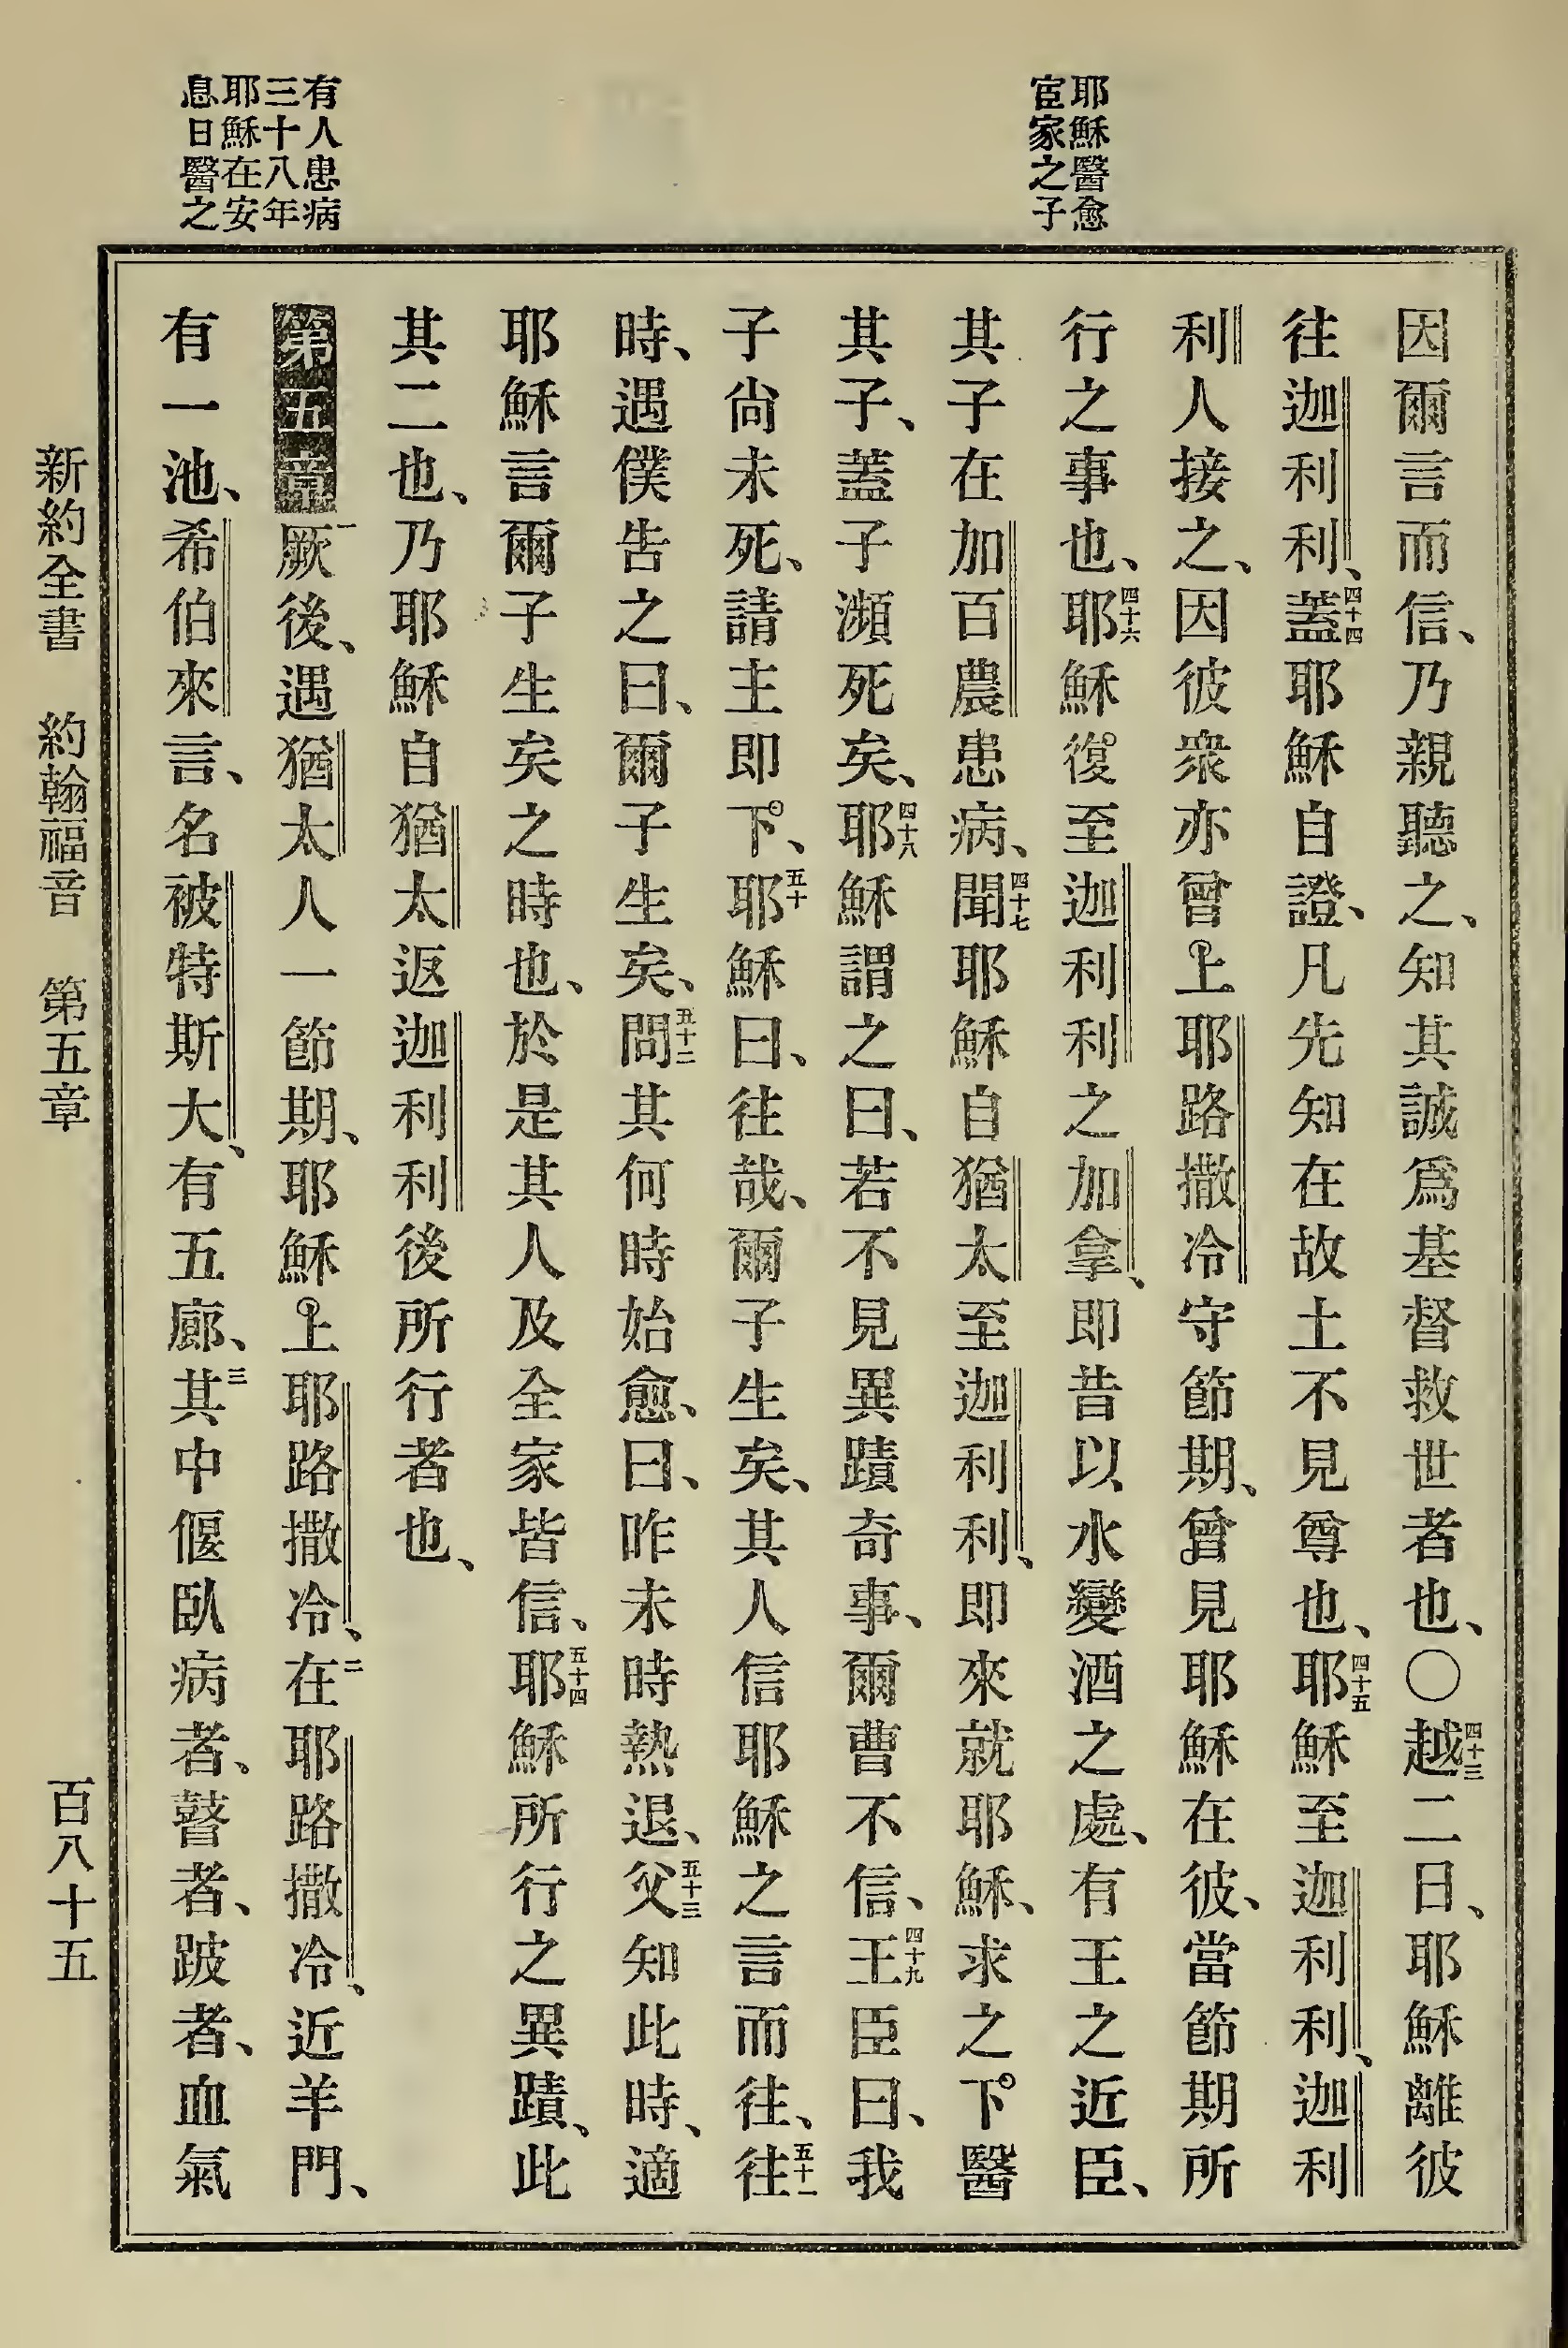 耶穌醫愈
宦家之子
有人患病
三十八年
耶穌在安
息日醫之
因爾言而信、乃親聽之、知其誠爲基督救世者也、〇四十三越二日、耶穌離彼
往迦利利、四十四蓋耶穌自證、凡先知在故土不見尊也、四十五耶穌至迦利利、迦利
利人接之、因彼衆亦曾上耶路撒冷守節期、曾見耶穌在彼、當節期所
行之事也、四十六耶穌復至迦利利之加拿、即昔以水變酒之處、有王之近臣、
其子在加百農患病、四十七聞耶穌自猶太至迦利利、即來就耶穌、求之下醫
其子、蓋子瀕死矣、四十八耶穌謂之曰、若不見異蹟奇事、爾曹不信、四十九王臣曰、我
子尙未死、請主即下、五十耶穌曰、往哉、爾子生矣、其人信耶穌之言而往、五十一往
時、遇僕告之曰、爾子生矣、五十二問其何時始愈、曰、昨未時熱退、五十三父知此時、適
耶穌言爾子生矣之時也、於是其人及全家皆信、五十四耶穌所行之異蹟、此
其二也、乃耶穌自猶太返迦利利後所行者也、
第五章一厥後、遇猶太人一節期、耶穌上耶路撒冷、二在耶路撒冷、近羊門、
有一池、希伯來言、名被特斯大、有五廊、三其中偃臥病者、瞽者、跛者、血氣
新約全書 約翰福音 第五章 百八十五